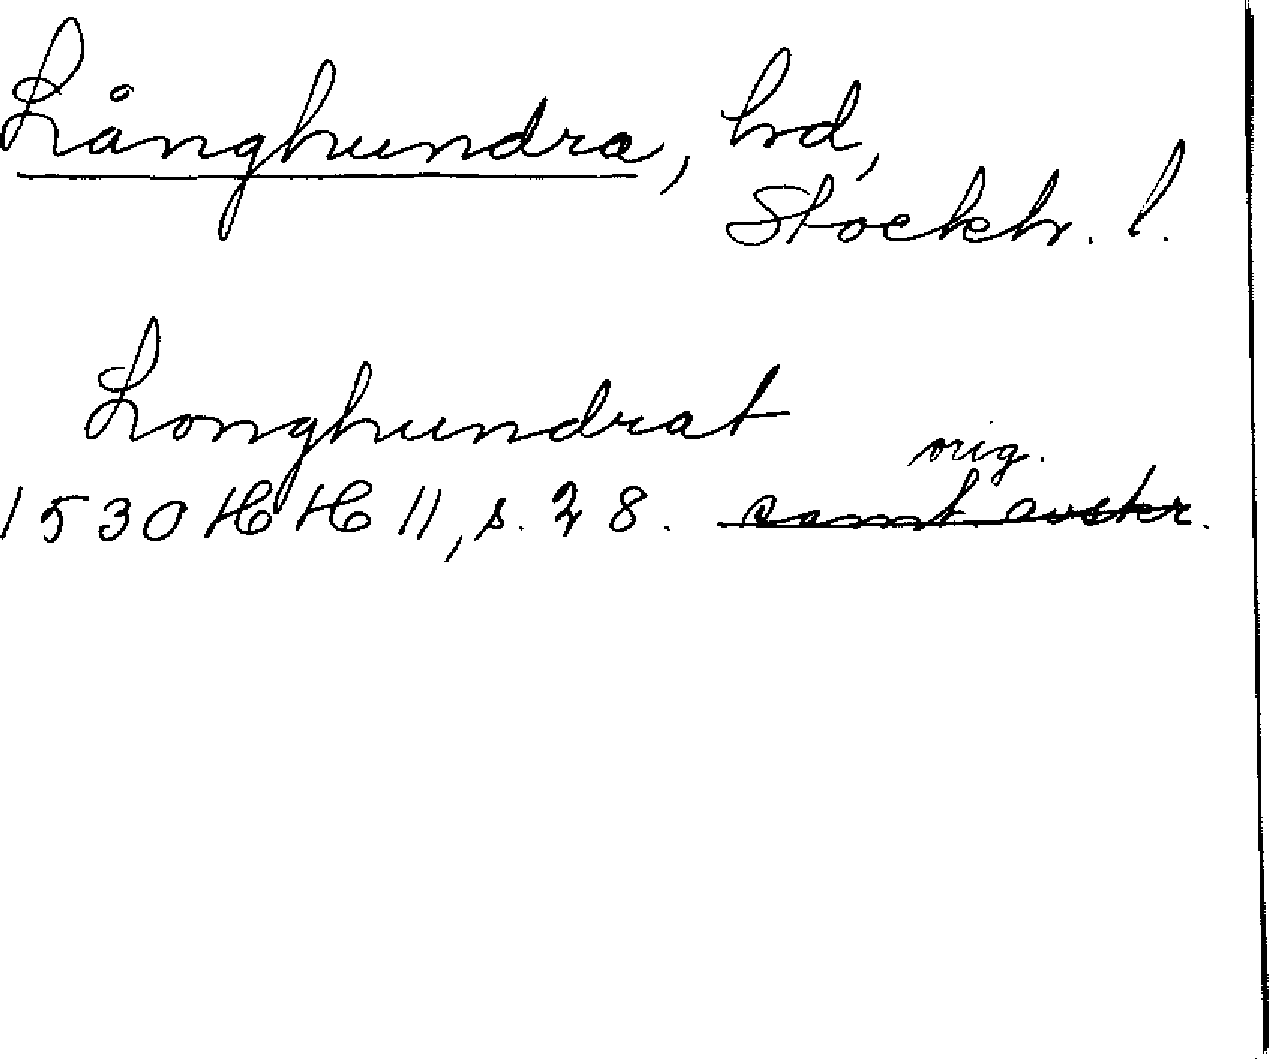 Långhundra, hrd,
Stockh. l.
Longhundrat
orig.
1530 HH 11, s. 28. samt. avskr.